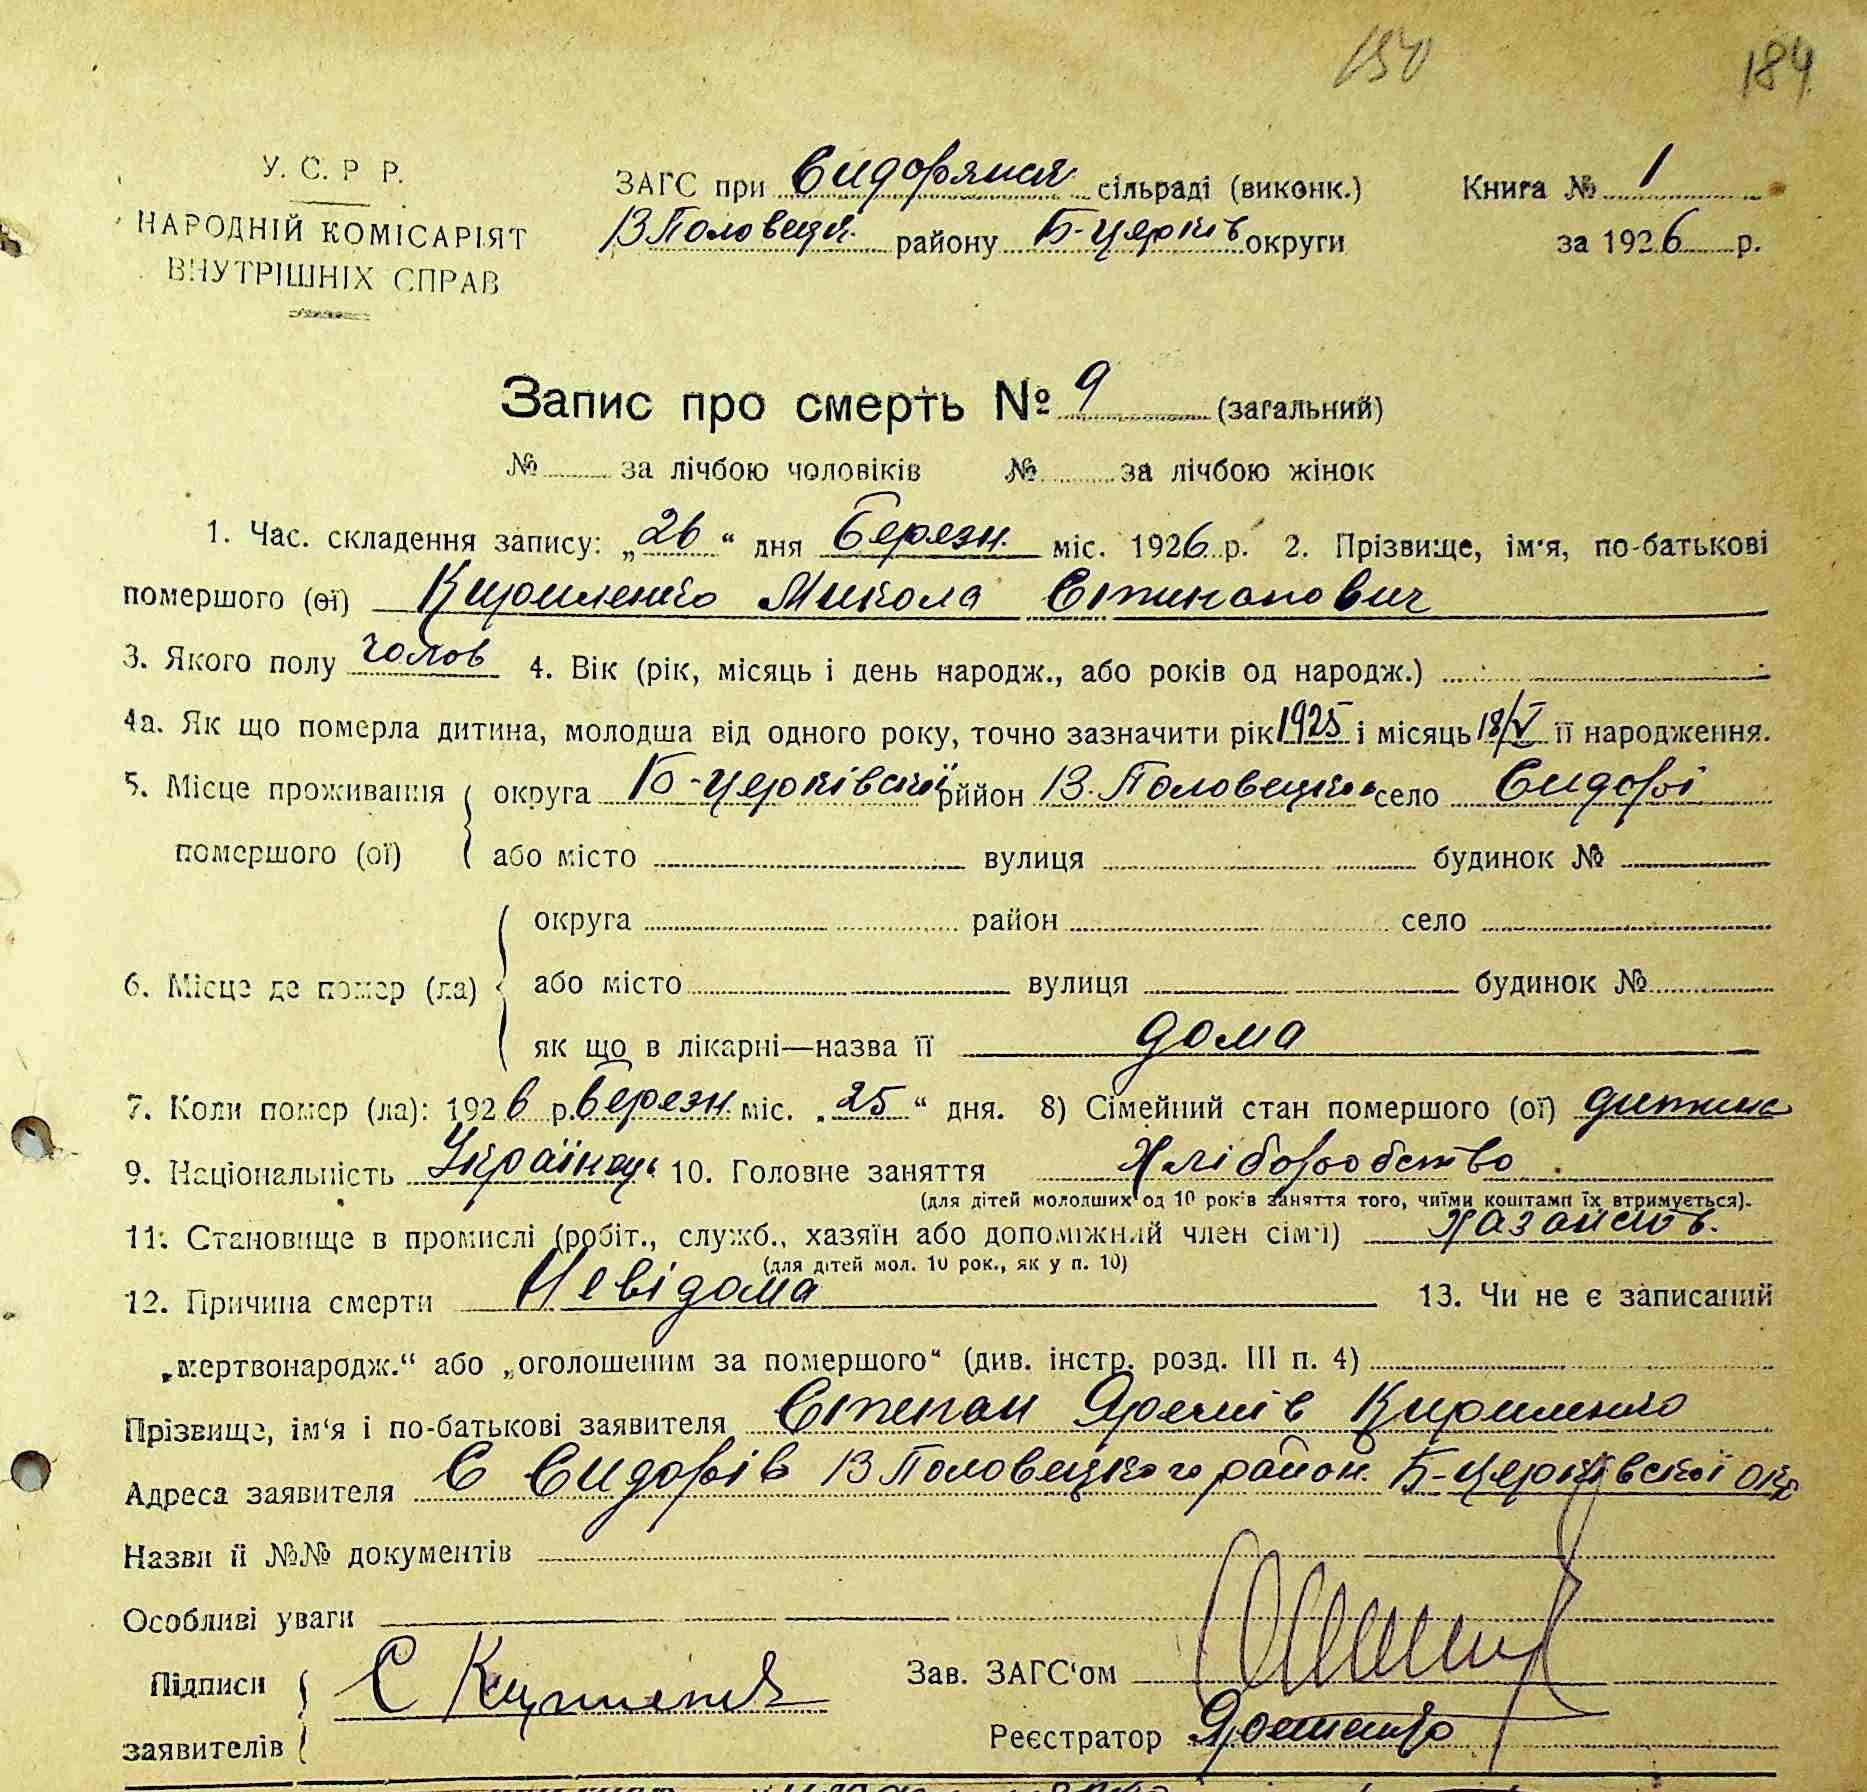 150 184
У. С. Р. Р.
НАРОДНІЙ КОМІСАРІЯТ
ВНУТРІШНІХ СПРАВ
ЗАГС при Сидорянск сільраді (виконк.) Книга № 1
В Половецк. району Б-Церків округи за 1926 р.
Запис про смерть № 9 (загальний)
№ за лічбою чоловіків № за лічбою жінок
1. Час. складення запису: „26“ дня Березн. міс. 1926 р. 2. Прізвище, ім'я, по-батькові
помершого (ої) Кириленко Микола Степанович
3. Якого полу чолов 4. Вік (рік, місяць і день народж., або років од народж.)
4а. Як що померла дитина, молодша від одного року, точно зазначити рік 1925 і місяць 18/V її народження.
5. Місце проживання округа Б-Церківської район В. Половецького село Сидорі
помершого (ої) або місто вулиця будинок №
округа район село
6. Місце де помер (ла) або місто вулиця будинок №
як що в лікарні—назва її дома
7. Коли помер (ла): 1926 р. Березн. міс. „25“ дня. 8) Сімейний стан помершого (ої) дитина
9. Національність Українець 10. Головне заняття Хліборобство
(для дітей молодших од 10 років заняття того, чиїми коштами їх втримується).
11. Становище в промислі (робіт., служб., хазяїн або допоміжний член сім'ї)
(для дітей мол. 10 рок., як у п. 10)
12. Причина смерти Невідома 13. Чи не є записаний
„мертвонародж.“ або „оголошеним за помершого“ (див. інстр. розд. III п. 4)
Прізвище, ім'я і по-батькові заявителя Степан Яремів Кириленко
Адреса заявителя С Сидорів В Половецкого район. Б-Церківської окр
Назви її №№ документів
Особливі уваги
Підписи С Зав. ЗАГС'ом
заявителів Реєстратор